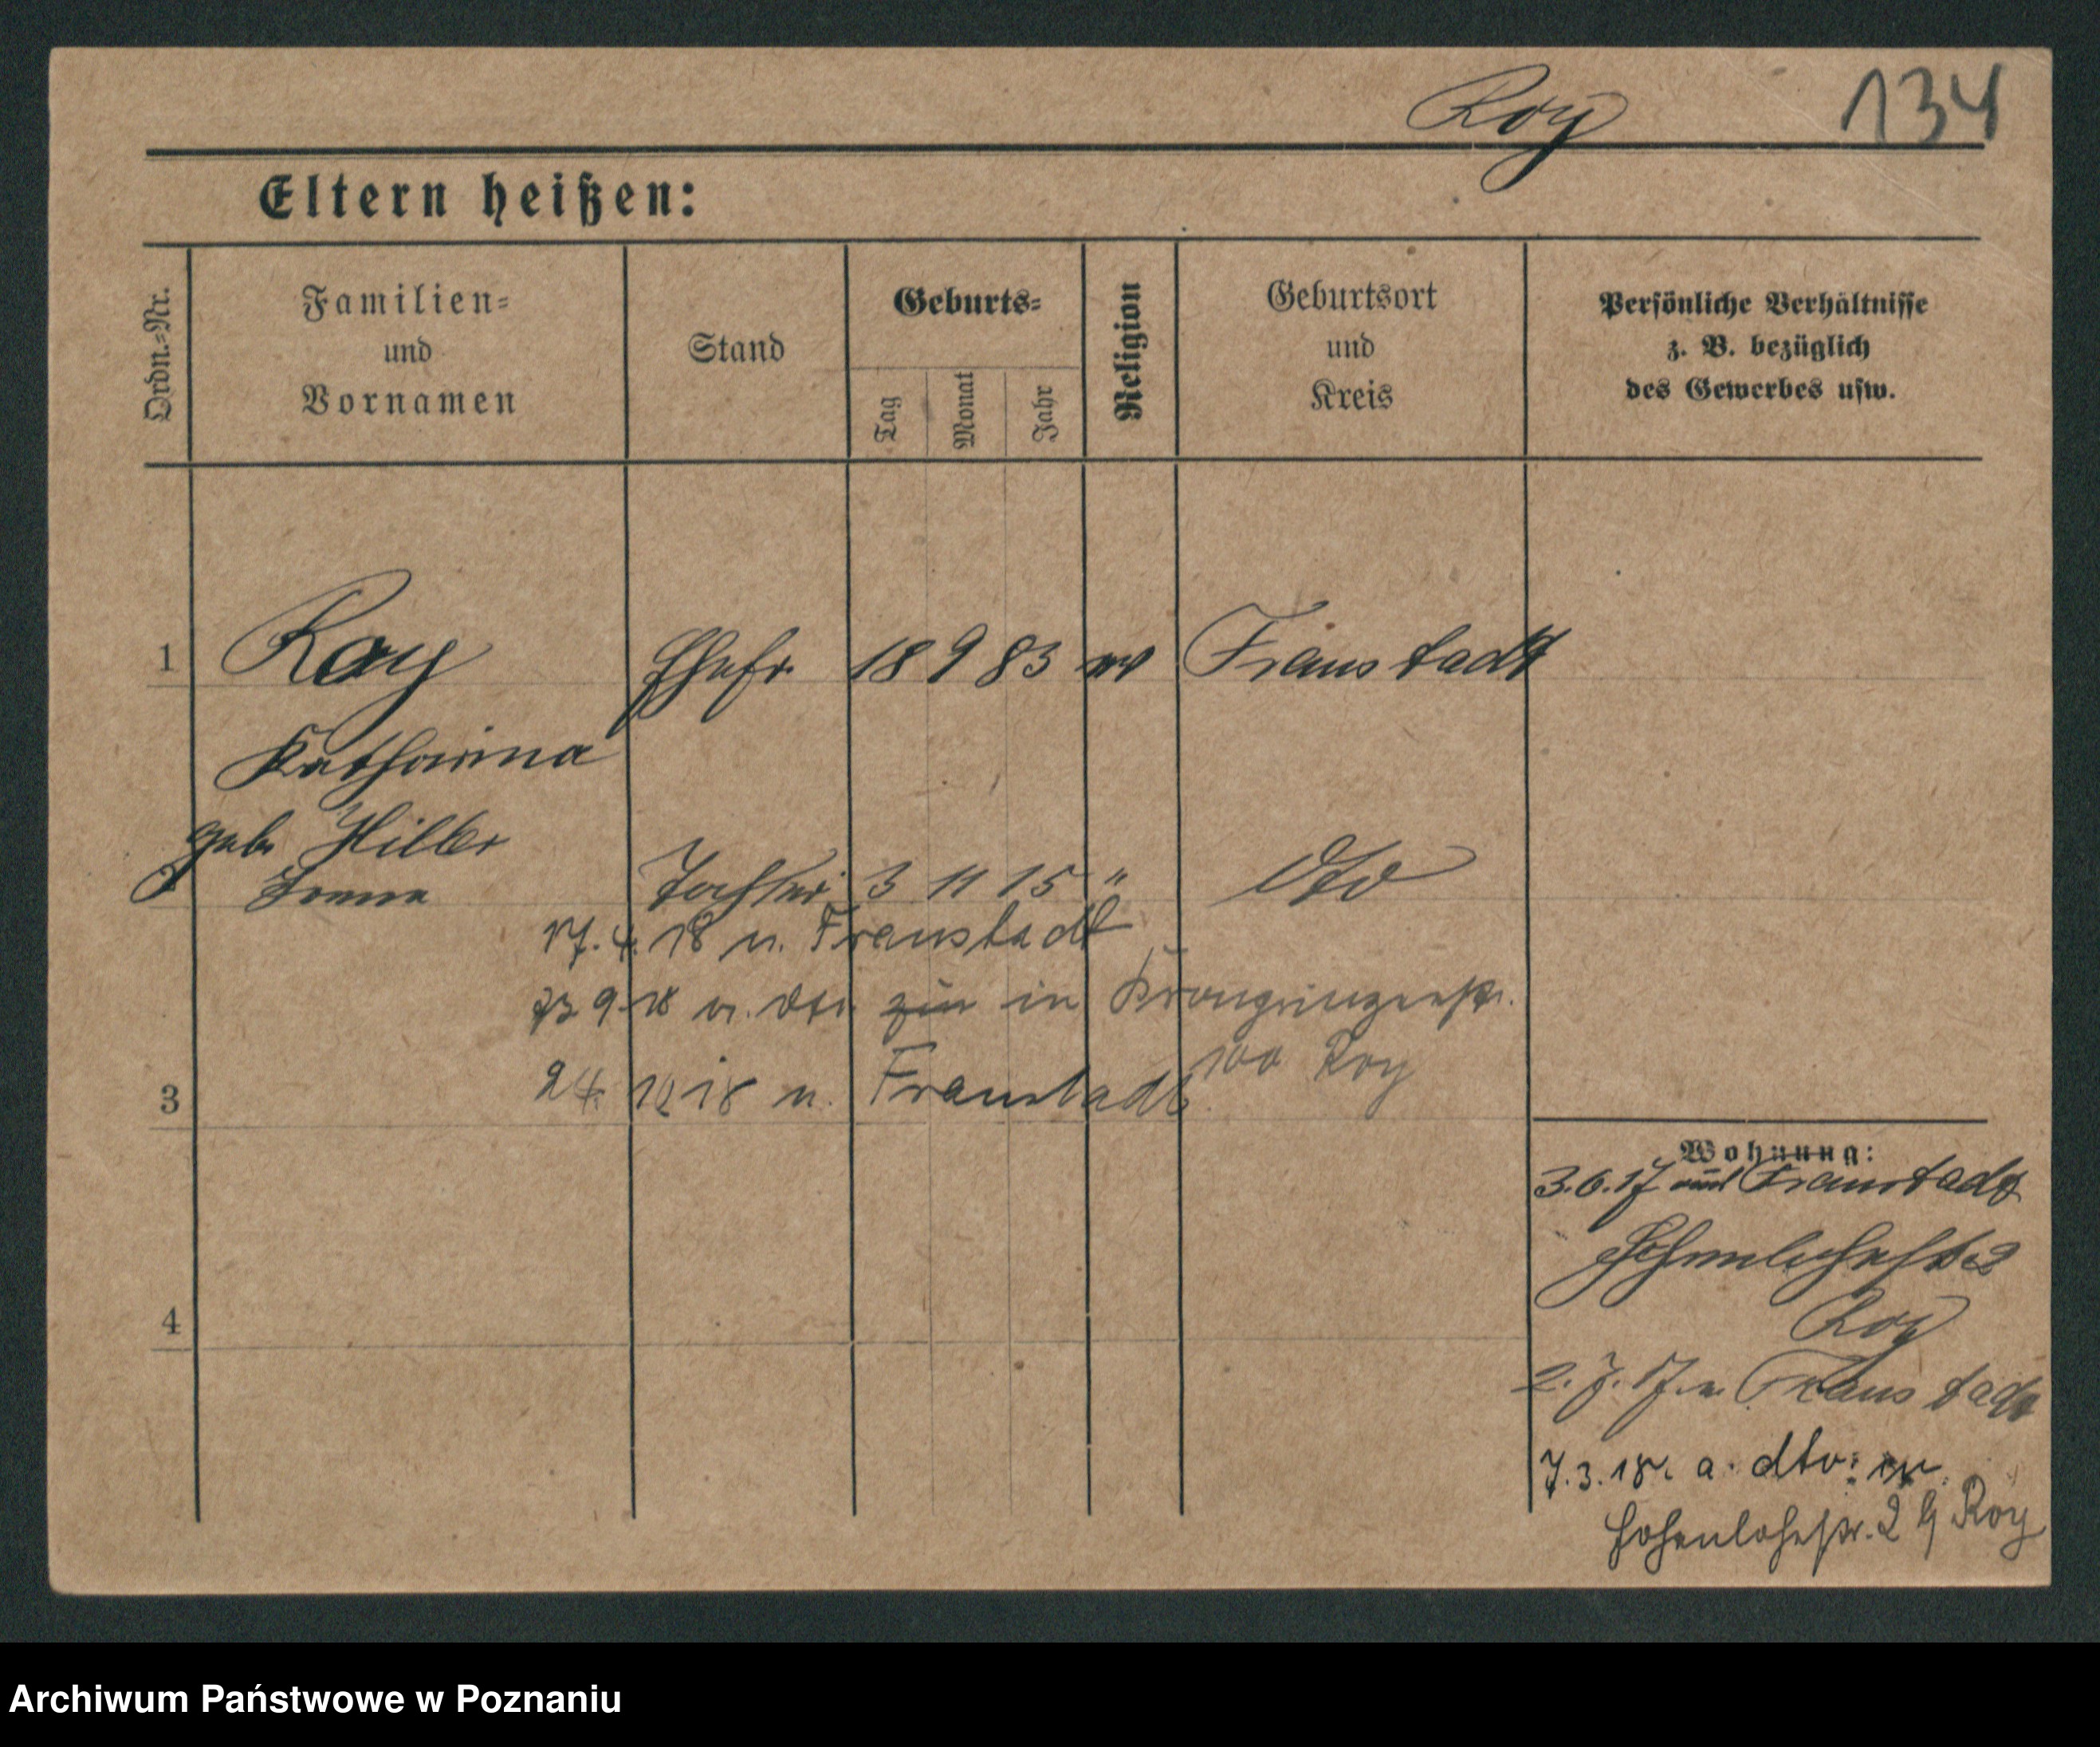 Roy 134
Eltern heißen:
Ordn.-Nr.
Familien-
und
Vornamen
Stand
Geburts-
Tag
Monat
Jahr
Religion
Geburtsort
und
Kreis
Persönliche Verhältnisse
z. B. bezüglich
des Gewerbes usw.
1 Roy Ehefr. 18 9 83 Fraustadt
Katharina
geb. Hiller
2 Tochter 3 11 15 " dto
17. 4. 18 n. Fraustadt
23 9. 18 v. dto. in Kronprinzenstr.
100 Roy
24. 18 n. Fraustadt
3
4
Wohnung:
3. 6. 17 Fraustadt
Roy
2. 7. 17. n. Fraustadt
7. 3. 18. a. dto:
Hohenlohestr. 2 Roy
Archiwum Państwowe w Poznaniu